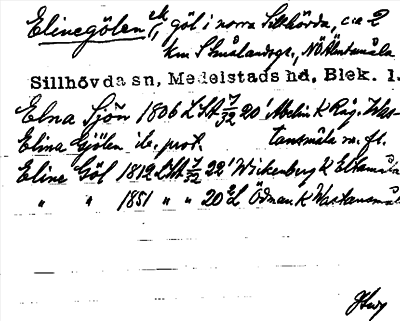 Elinegölen, göl i norra Sillhövda, c:a 2
km S Smålandsgr., NÖ Älmtamåla
Sillhövda sn, Medelstads hd, Blek. l.
Elna Sjön 1806 LSA 7/32 20' Melin K Råg. Was-
Elina Gjölen ib. prot. tansmåla m. fl.
Eline Göl 1812 LSA 7/32 22' Wickenberg K Eltamåla
" " 1851 " " 20 Ödman K Wastansmåla